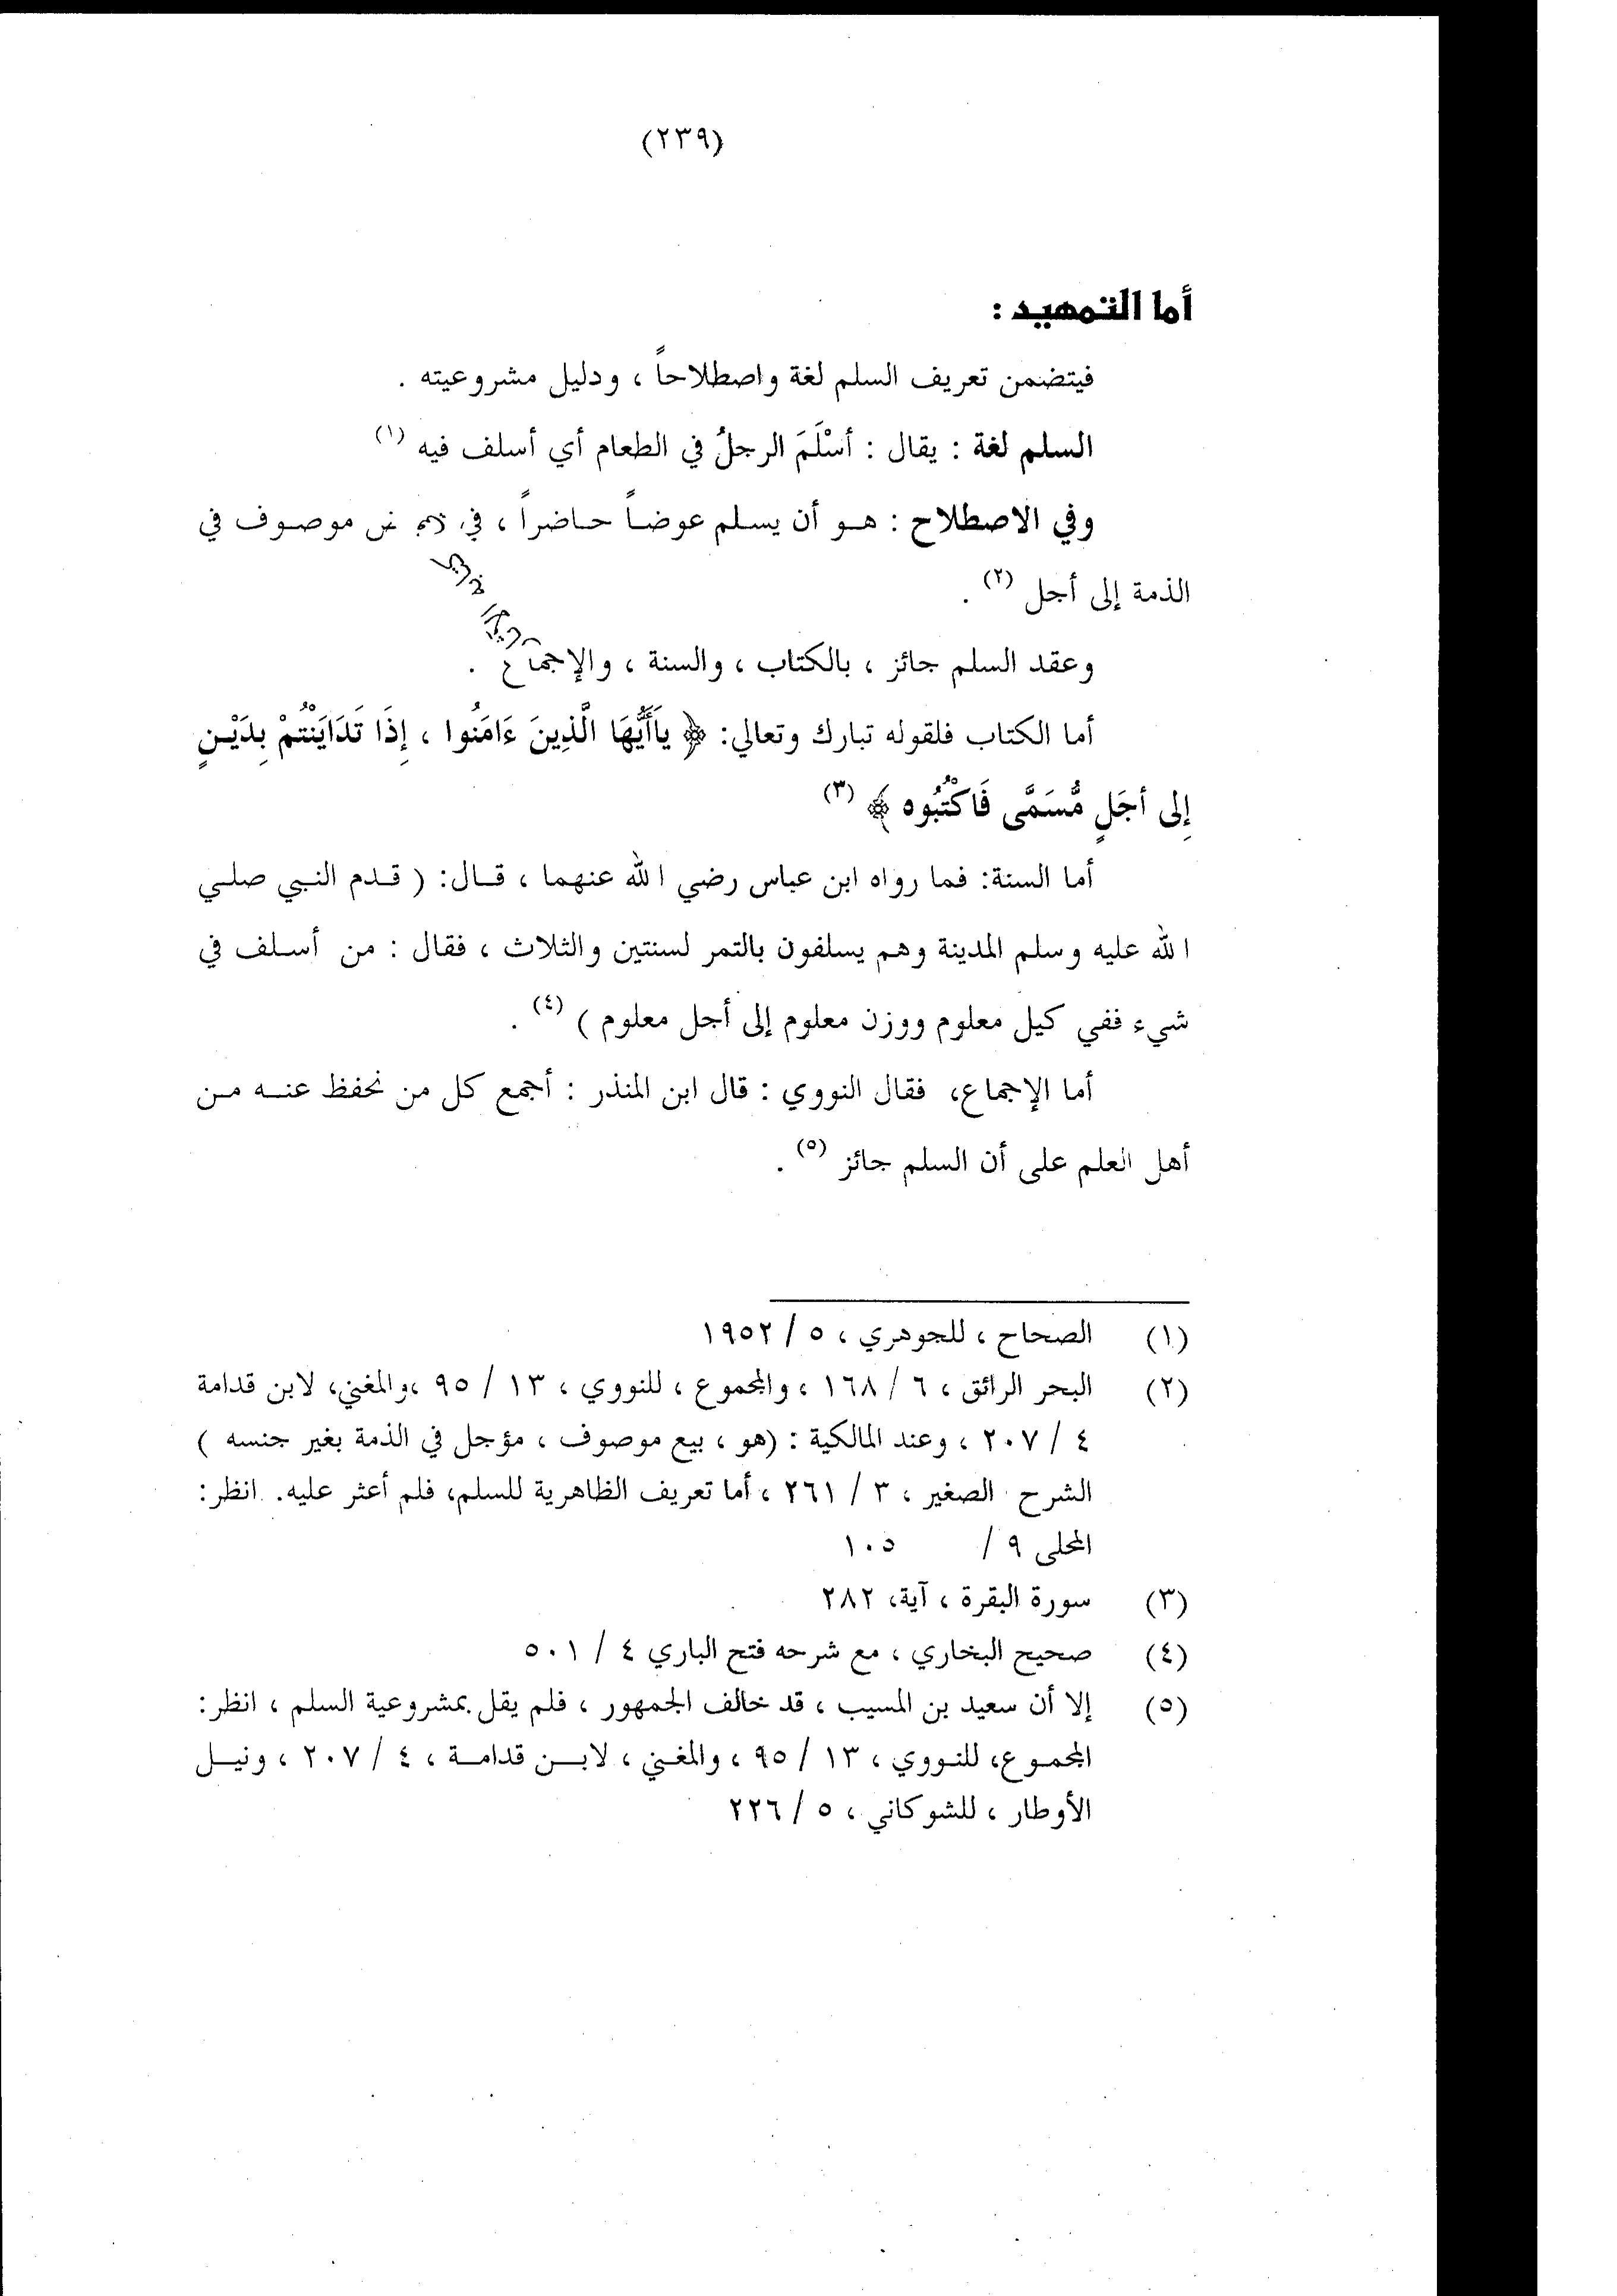 (٢٣٩)
أما التمهيد :
فيتضمن تعريف السلم لغة واصطلاحاً ، ودليل مشروعيته .
السلم لغة : يقال : أسْلَمَ الرجلُ في الطعام أي أسلف فيه (١)
وفي الاصطلاح : هو أن يسلم عوضاً حاضراً ، في موصوف في
الذمة إلى أجل (٢) .
وعقد السلم جائز ، بالكتاب ، والسنة ، والإجماع .
أما الكتاب فلقوله تبارك وتعالي: ﴿ يَاأَيُّهَا الَّذِينَ ءَامَنُوا ، إِذَا تَدَايَنْتُمْ بِدَيْنٍ
إِلى أجَلٍ مُّسَمَّى فَاكْتُبُوه ﴾ (٣)
أما السنة: فما رواه ابن عباس رضي الله عنهما ، قال: ( قدم النبي صلي
الله عليه وسلم المدينة وهم يسلفون بالتمر لسنتين والثلاث ، فقال : من أسلف في
شيء ففي كيل معلوم ووزن معلوم إلى أجل معلوم ) (٤) .
أما الإجماع، فقال النووي : قال ابن المنذر : أجمع كل من نحفظ عنه من
أهل العلم على أن السلم جائز (٥) .
(١) الصحاح ، للجوهري ، ٥ / ١٩٥٢
(٢) البحر الرائق ، ٦ / ١٦٨ ، والمجموع ، للنووي ، ١٣ / ٩٥ ،والمغني، لابن قدامة
٤ / ٢٠٧ ، وعند المالكية : (هو ، بيع موصوف ، مؤجل في الذمة بغير جنسه )
الشرح الصغير ، ٣ / ٢٦١ ، أما تعريف الظاهرية للسلم، فلم أعثر عليه. انظر:
المحلى ٩ / ١٠٥
(٣) سورة البقرة ، آية، ٢٨٢
(٤) صحيح البخاري ، مع شرحه فتح الباري ٤ / ٥٠١
(٥) إلا أن سعيد بن المسيب ، قد خالف الجمهور ، فلم يقل بمشروعية السلم ، انظر:
المجموع، للنووي ، ١٣ / ٩٥ ، والمغني ، لابن قدامة ، ٤ / ٢٠٧ ، ونيل
الأوطار ، للشوكاني ، ٥ / ٢٢٦